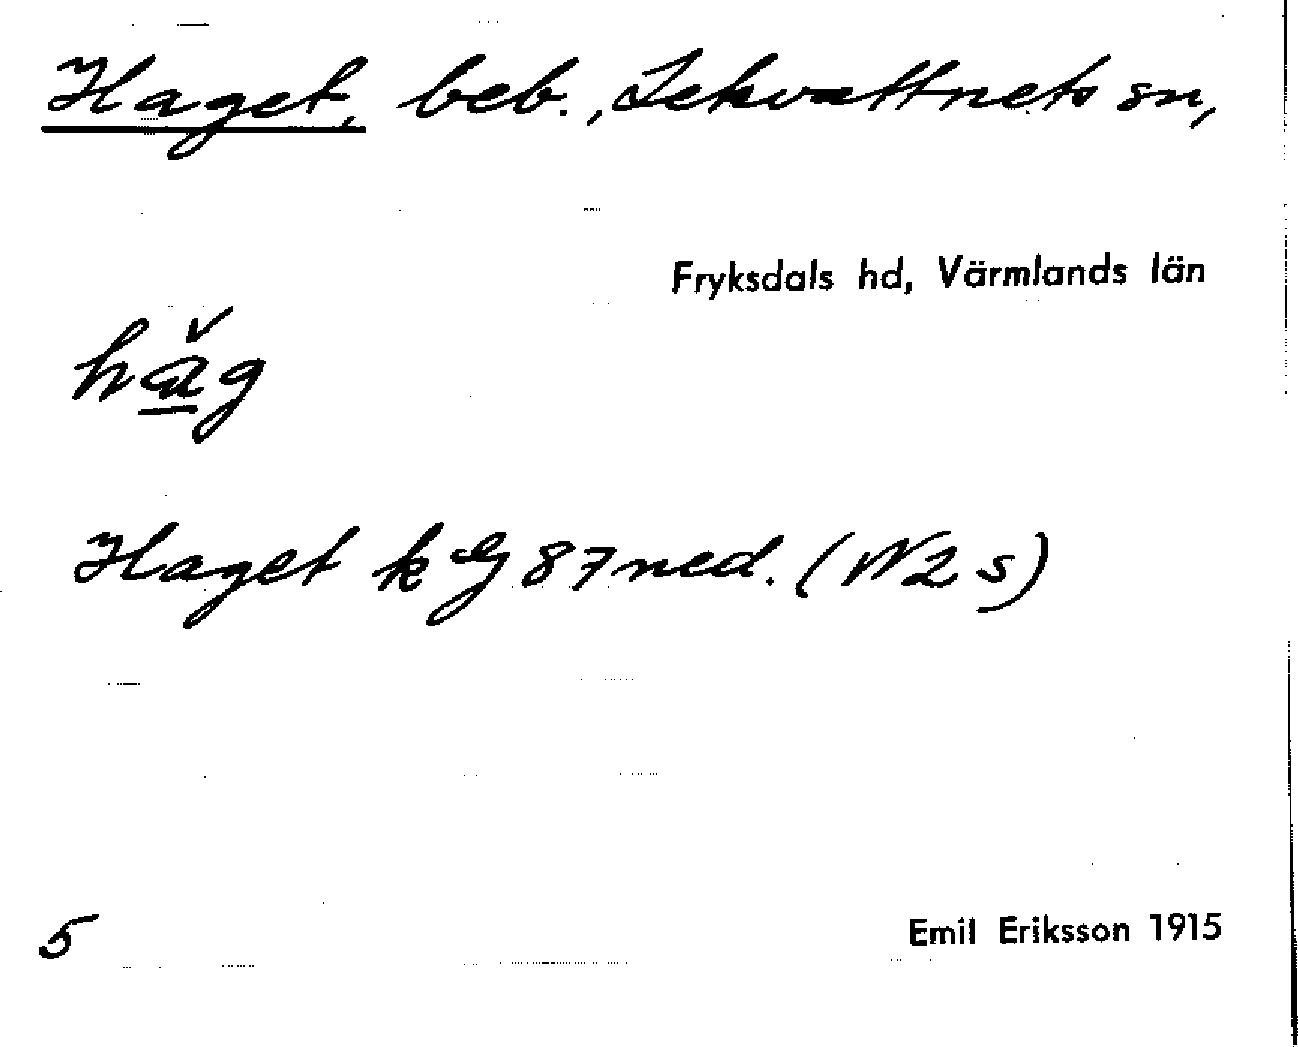 Haget, beb., Lekvattnets sn,
Fryksdals hd, Värmlands län
hǎg
Haget k eg 87 ned. (W2s)
5
Emil Eriksson 1915